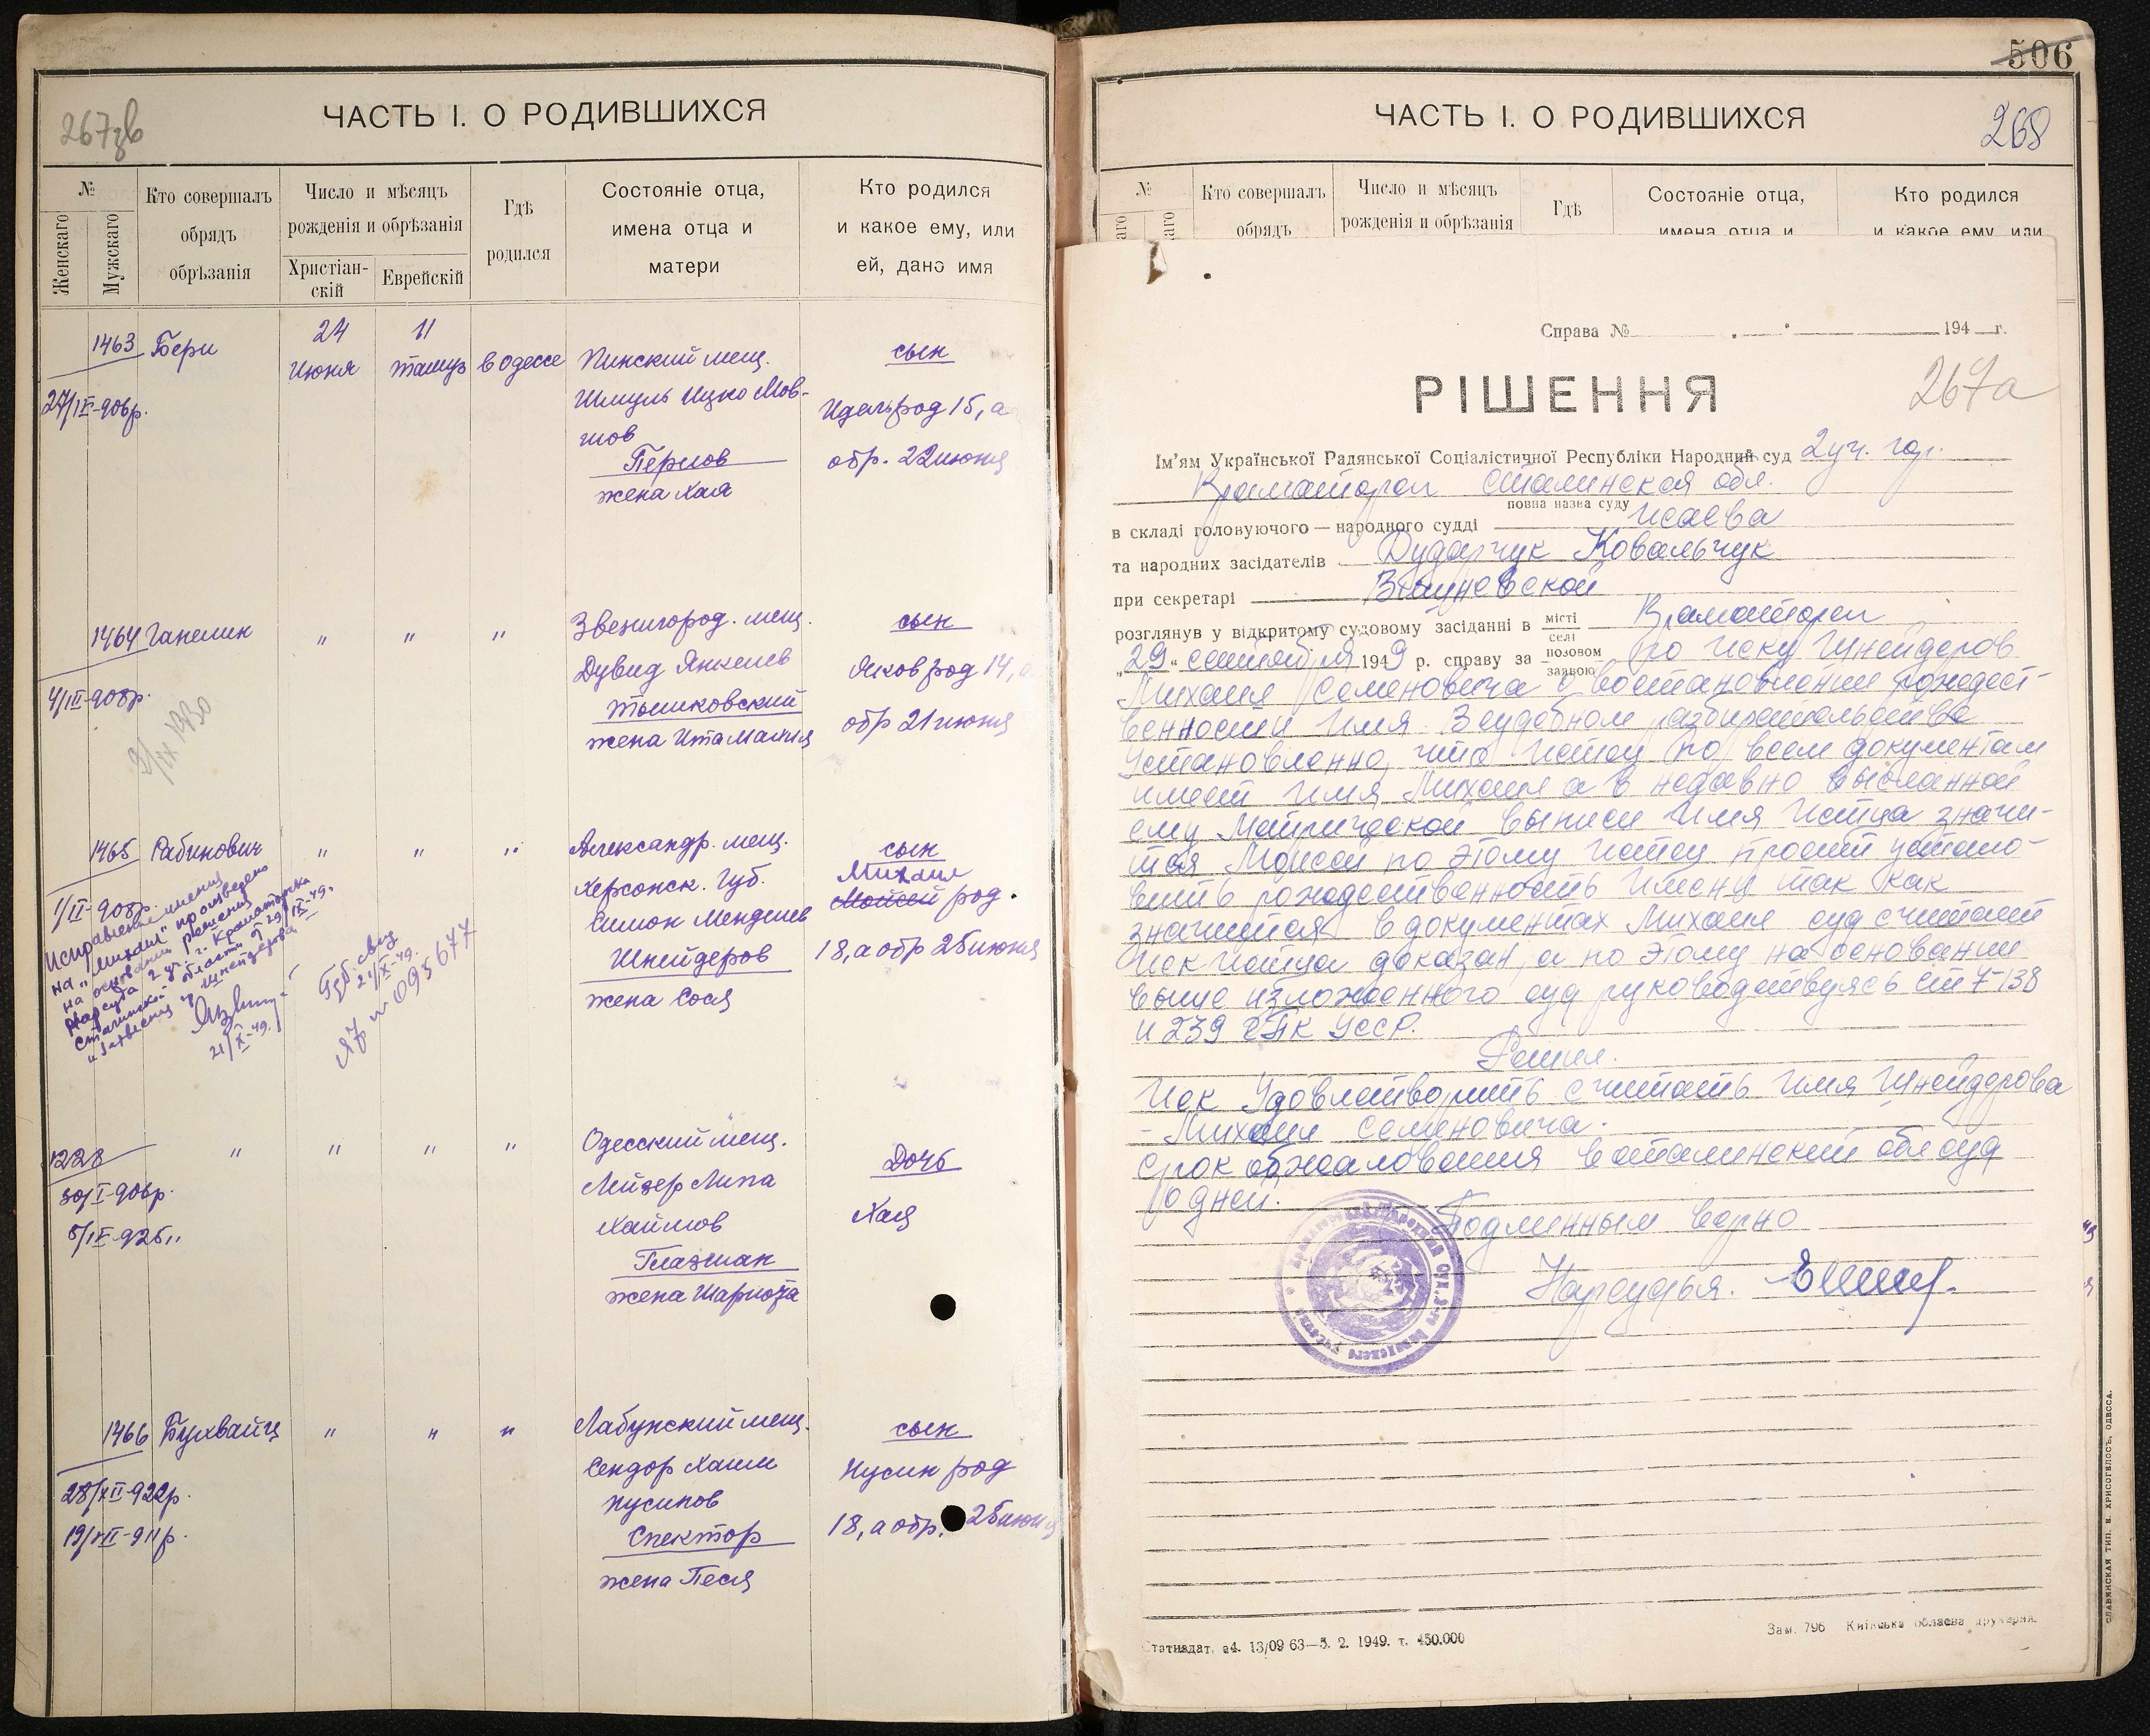 267зв
ЧАСТЬ I. О РОДИВШИХСЯ
№
Женскаго
Мужскаго
Кто совершалъ
обрядъ
обрѣзанія
Число и мѣсяцъ
рожденія и обрѣзанія
Христіан-
скій
Еврейскій
Гдѣ
родился
Состояніе отца,
имена отца и
матери
Кто родился
и какое ему, или
ей, дано имя
1463 Бери
27/IX-906р.
24
Июня
11
Тамуз
в Одессе
Пинский мещ.
Шмуль Ицко Мов-
шов
Перлов
жена Хая
сын
Идель род 15, а
обр. 22 июня
1464 Ганелин
4/III-908р.
" " "
Звенигород. мещ.
Дувид Янкелев
Тышковский
жена Ита Малия
сын
Яков род 14, а
обр 21 июня
1465 Рабинович
1/II-908р.
" " "
Александр. мещ.
Херсонск. Губ.
Симон Менделев
Шнейдеров
жена Сося
сын
Михаил
Моисей род.
18, а обр 25 июня
Исправление имени
на "Михаил" произведено
на основании решения
Нарсуда 2 уч. г. Краматорска
Сталинской области от 29/IX-49.
и заявления гр Шнейдерова
21/X-49.
21/X-49.
ЯЗ № 095677
1228
30/I-906р.
5/IX-925
" " " "
Одесский мещ.
Лейзер Липа
Хаимов
Глазман
жена Шарлота
Дочь
Хая
1466 Бухвайц
28/XII-922р.
19/VII-911р.
" " "
Лабунский мещ.
Сендор Хаим
Нусинов
Спектор
жена Песя
сын
Нусин род
18, а обр. 25 июня
506
ЧАСТЬ I. О РОДИВШИХСЯ
268
№
Кто совершалъ
обрядъ
Число и мѣсяцъ
рожденія и обрѣзанія
Гдѣ
Состояніе отца,
имена отца и
Кто родился
и какое ему, или
Справа № 194 г.
РІШЕННЯ
267а
Ім'ям Української Радянської Соціалістичної Республіки Народний суд 2 уч. гор.
Краматорск Сталинская обл.
повна назва суду
в складі головуючого — народного судді Исаева
та народних засідателів Дударчук Ковальчук
при секретарі
розглянув у відкритому судовому засіданні в місті селі Краматорск
"29" сентября 1949 р. справу за позовом заявою по иску Шнейдеров
Михаил Семеновича о востановлении рождест-
венности имя В судебном разбирательстве
установленно, что истец по всем документам
имеет имя Михаил а в недавно высланной
ему Метрической выписи имя истца значи-
тся Моисей по этому истец просит устано-
вить рождественность имени так как
значится в документах Михаил суд считает
Иск истца доказан, а по этому на основании
выше изложенного суд руководствуясь ст 4-138
и 239 ГПК УССР.
Решил.
Иск Удовлетворить считать имя Шнейдерова
- Михаил Семеновича.
Срок обжалования в сталинский облсуд
10 дней.
Подлинным верно
Нарсудья.
Статиздат. а4. 13/09 63—5. 2. 1949. т. 450.000
Зам. 796 Київська обласна друкарня.
СЛАВЯНСКАЯ ТИП. Е. ХРИСОГЕЛОСЪ, ОДЕССА.